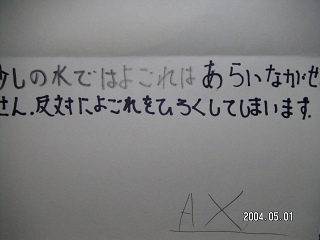 少しの水ではよごれはあらいながせ
せん.反対に、よごれをひろくしてしまいます.
AX
2004.05.01